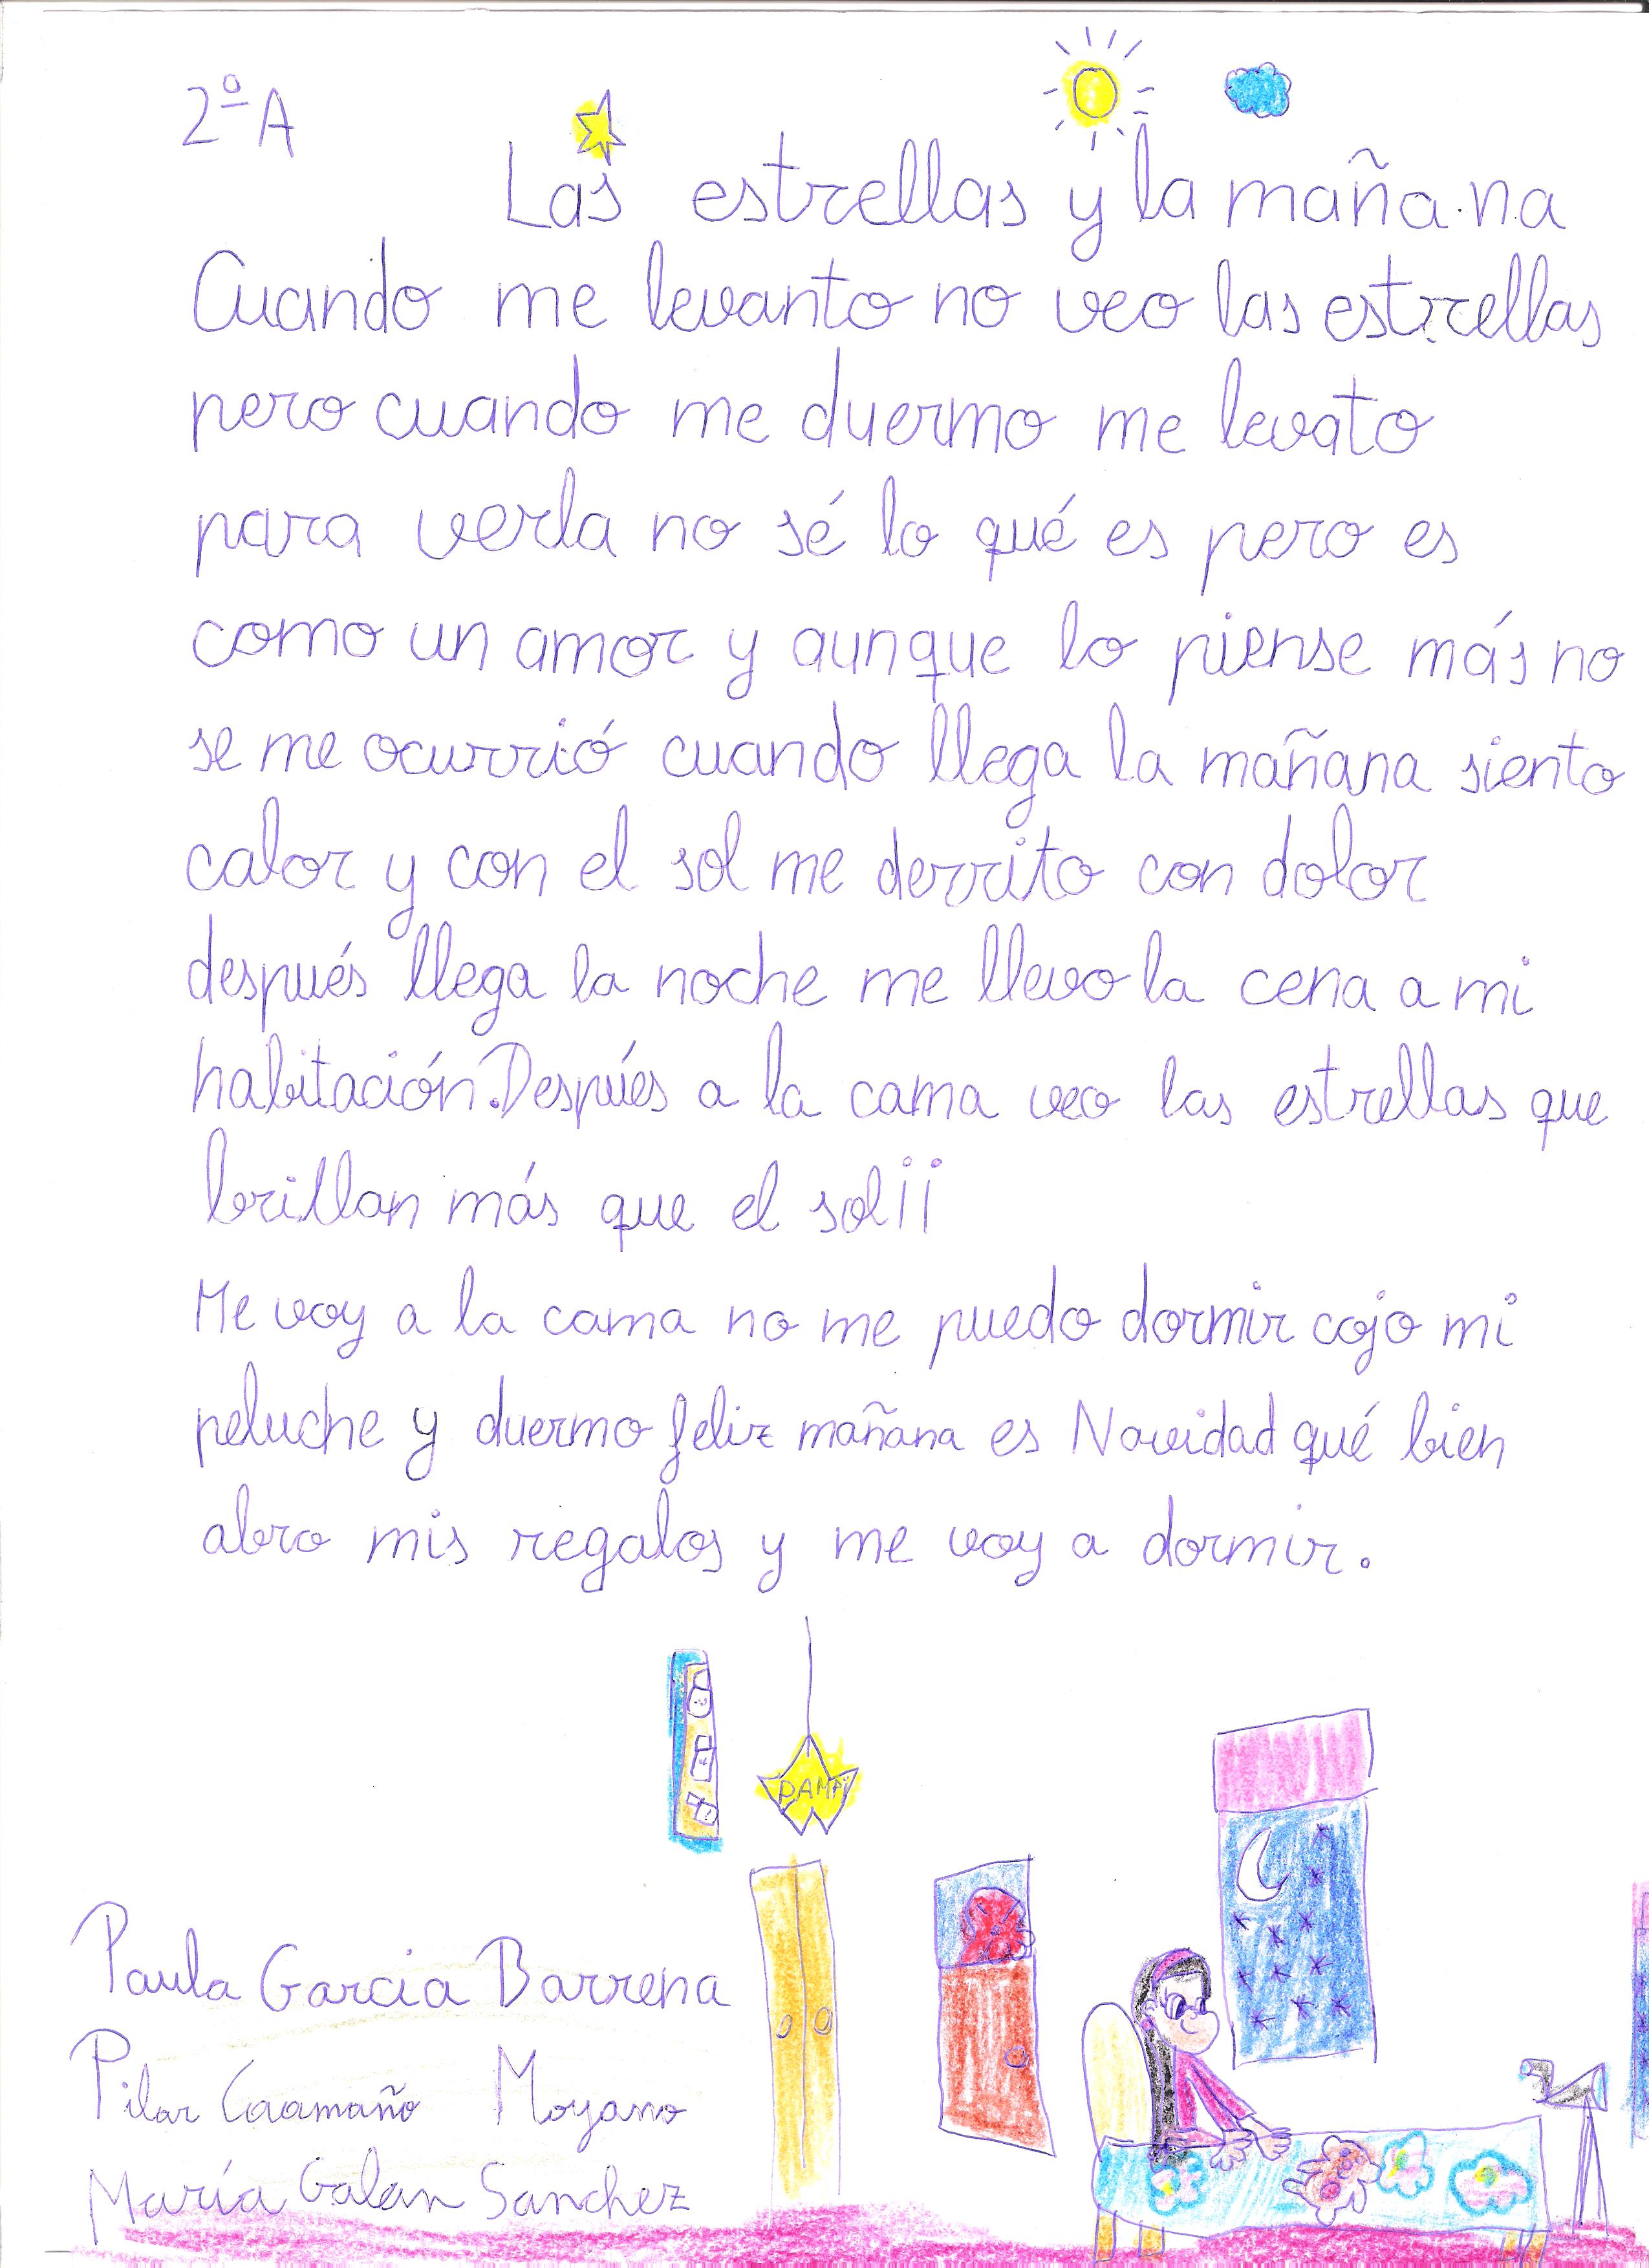 2º A
Las estrellas y la mañana
Cuando me levanto no veo las estrellas
pero cuando me duermo me levato
para verla no sé lo qué es pero es
como un amor y aunque lo piense más no
se me ocurrió cuando llega la mañana siento
calor y con el sol me derrito con dolor
después llega la noche me llevo la cena a mi
habitación. Después a la cama veo las estrellas que
brillan más que el sol¡¡
Me voy a la cama no me puedo dormir cojo mi
peluche y duermo feliz mañana es Navidad qué bien
abro mis regalos y me voy a dormir.
Paula Garcia Barrena
Pilar Caamaño Moyano
María Galan Sanchez